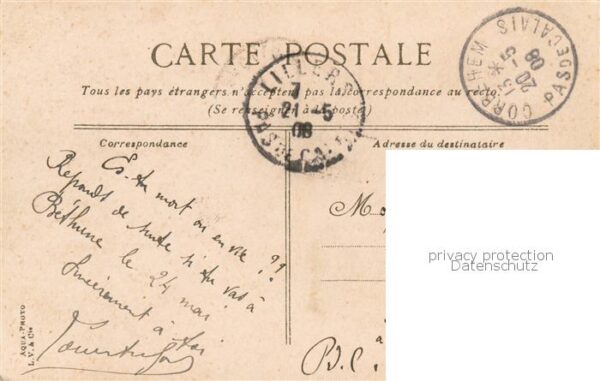 CARTE POSTALE
Tous les pays étrangers n'acceptent pas la correspondance au recto.
(Se renseigner à la poste)
LILLERS
7
21 -5
08
PAS DE CALAIS
CORBEHEM
15 *
20 -5
08
PAS DE CALAIS
Correspondance
Adresse du destinataire
Es-tu mort ou en vie ??
Réponds de suite si tu vas à
Béthune le 24 mai
Sincèrement à toi
M
à
P.C.
AQUA-PHOTO
L.V. & Cie
privacy protection
Datenschutz